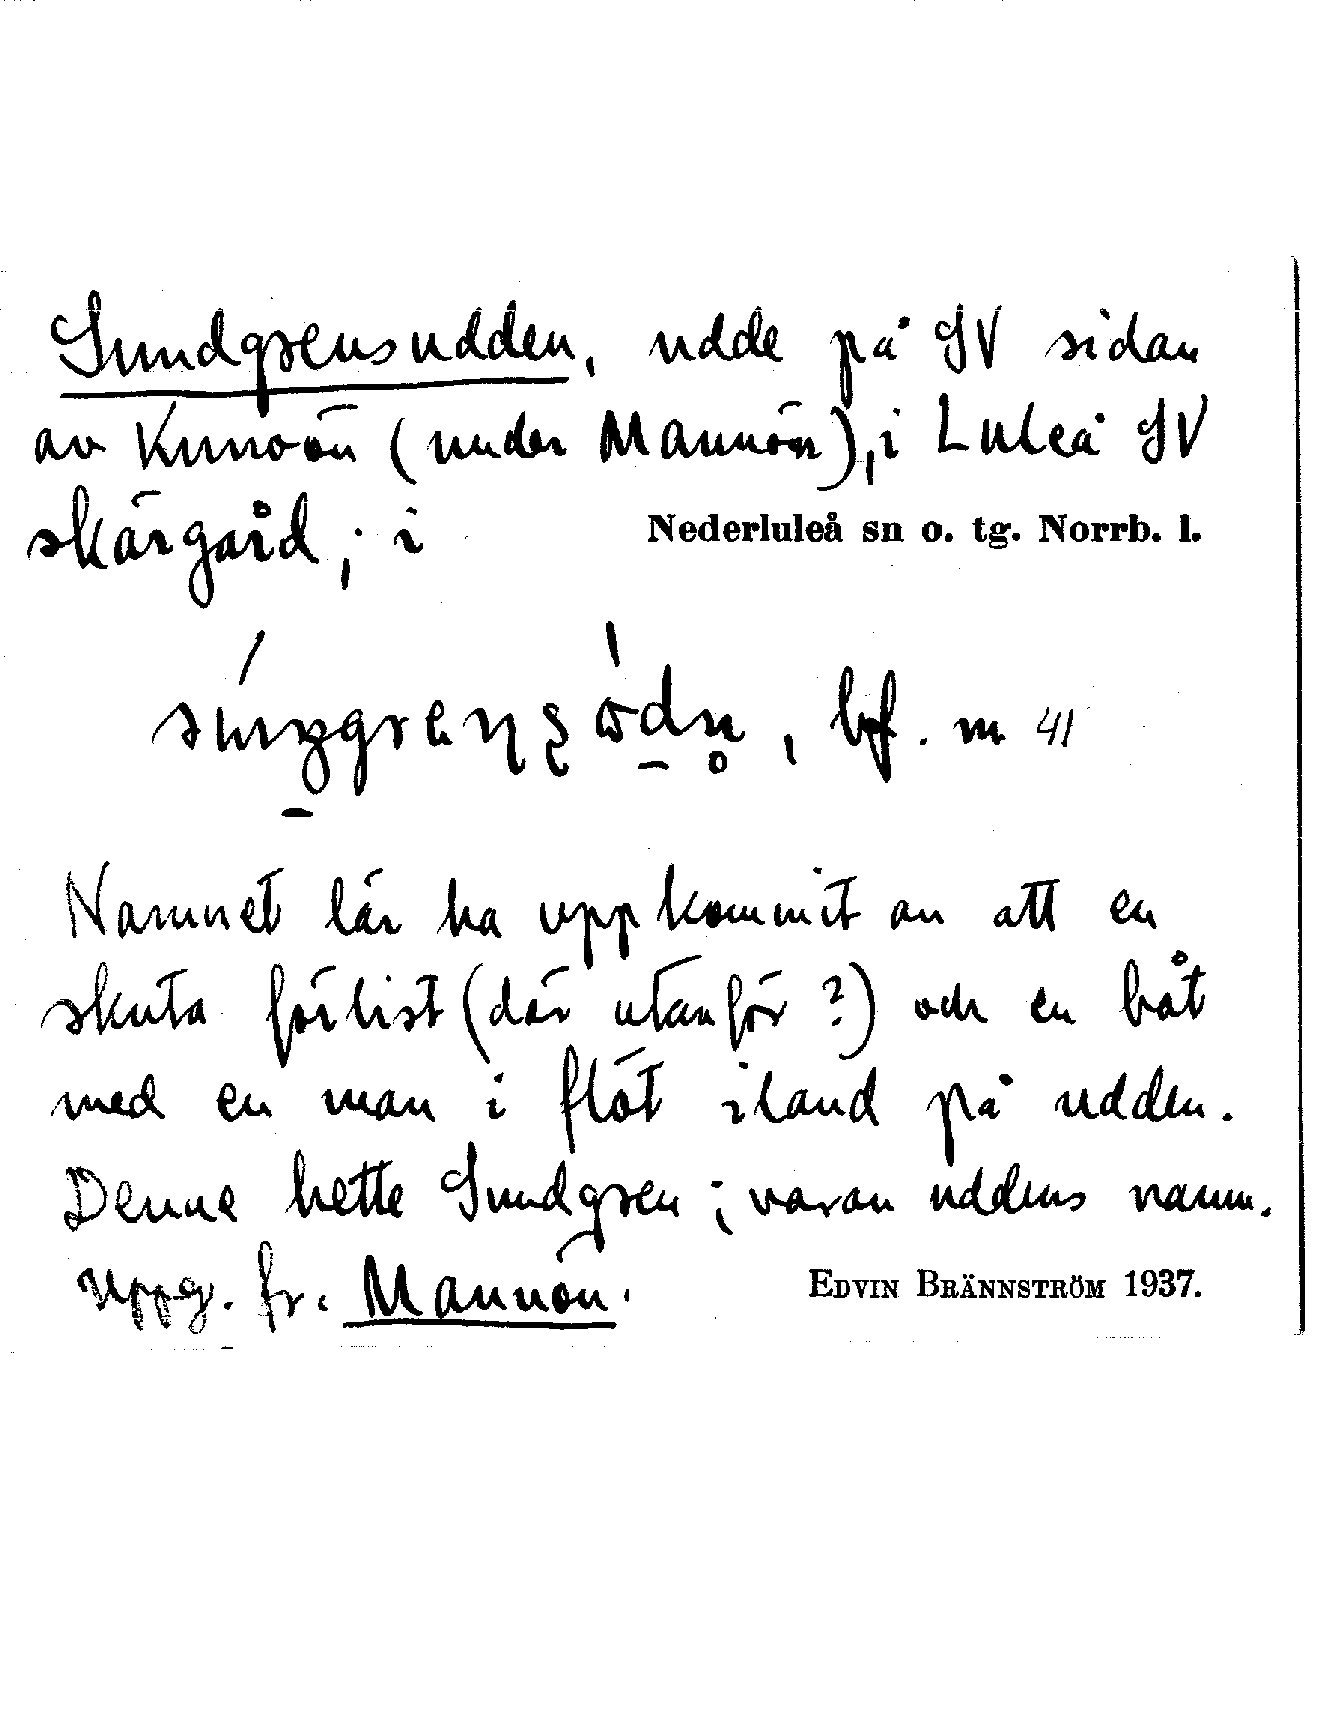 Sundgrensudden, udde på SV sidan
av Kunoön (under Mannön), i Luleå SV
skärgård, i Nederluleå sn o. tg. Norrb. l.
bf. m 41
Namnet lär ha uppkommit av att en
skuta förlist (där utanför?) och en båt
med en man i flöt iland på udden.
Denne hette Sundgren; varav uddens namn.
Uppg. fr. Mannön. EDVIN BRÄNNSTRÖM 1937.